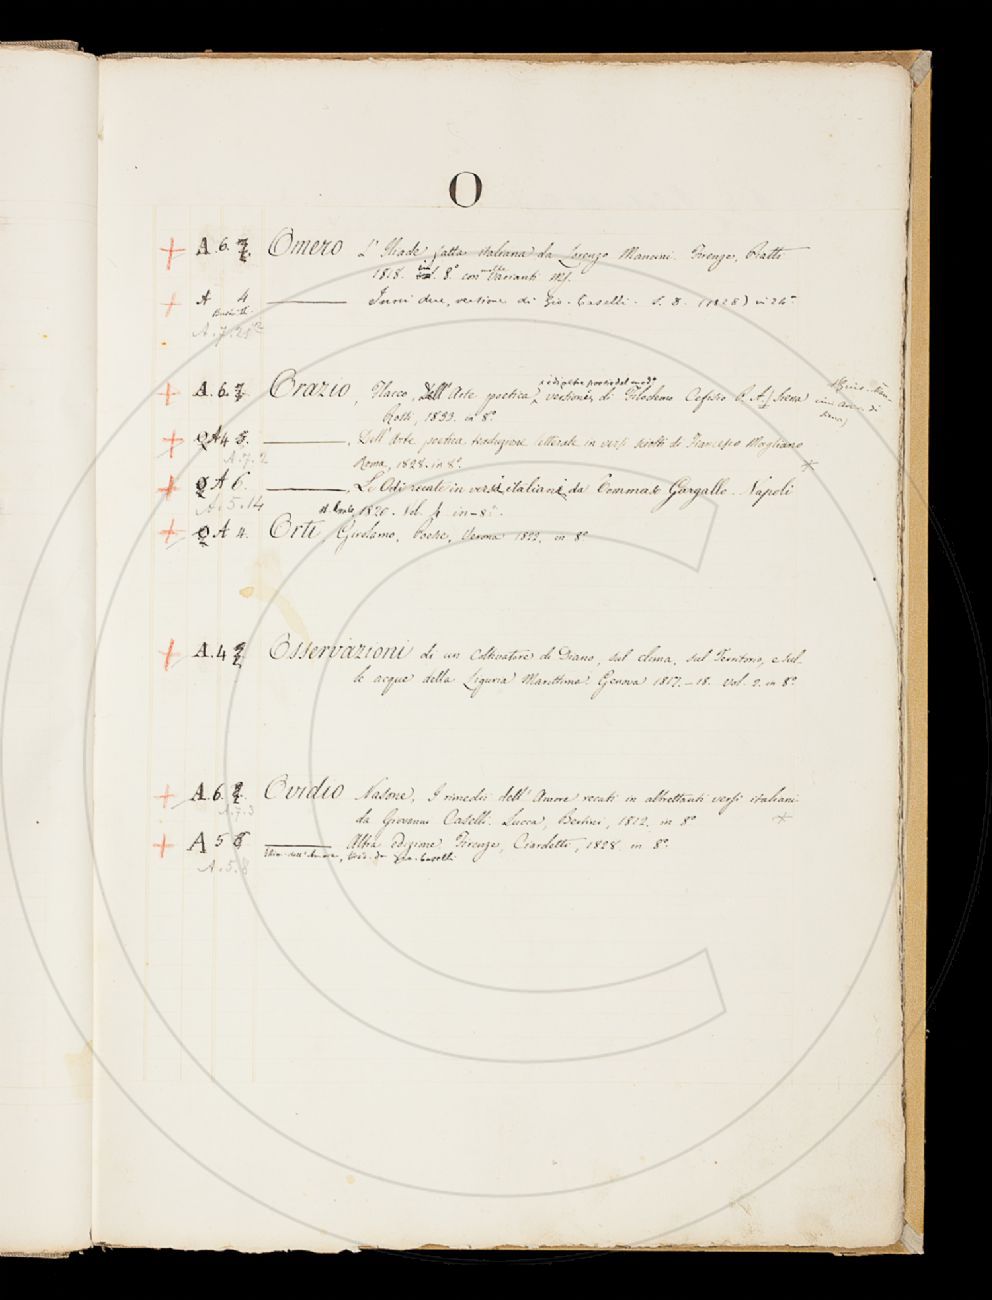 O
A. 6. Omero L'Iliade fatta italiana da Lorenzo Mancini. Firenze, Piatti
1818. 8.º con Varianti
A 4 ——— Inni due, versione di Gio. Caselli. S. B. (1828) in 24º
A. 7.
A. 6. Orazio, Flacco, Dell'Arte poetica, versione di Filodemo Cefisio P. A. Siena
Rossi, 1833. in 8º
A 4 ———, Dell'Arte poetica traduzione letterale in versi sciolti di Francesco Mogliano
A. 7. 2
Roma, 1828. in 8º.
A 6. ———, Le Odi recate in versi italiani da Tommaso Gargallo. Napoli
A. 5. 14
1820. Vol. 4 in-8º.
A 4. Orti, Girolamo, Poesie, Verona 1822. in 8º
A. 4 Osservazioni di un coltivatore di Diano, sul clima, sul Territorio, e sul-
le acque della Liguria Marittima. Genova 1817.-18. Vol. 2. in 8º
A. 6. Ovidio Nasone, I rimedii dell'Amore recati in altrettanti versi italiani
A. 7. 3
da Giovanni Caselli. Lucca, Bertini, 1822. in 8º
A 5 8 ——— Altra edizione Firenze, Ciardetti, 1828. in 8º.
dell'Amore, trad. da Gio. Caselli
A. 5. 8